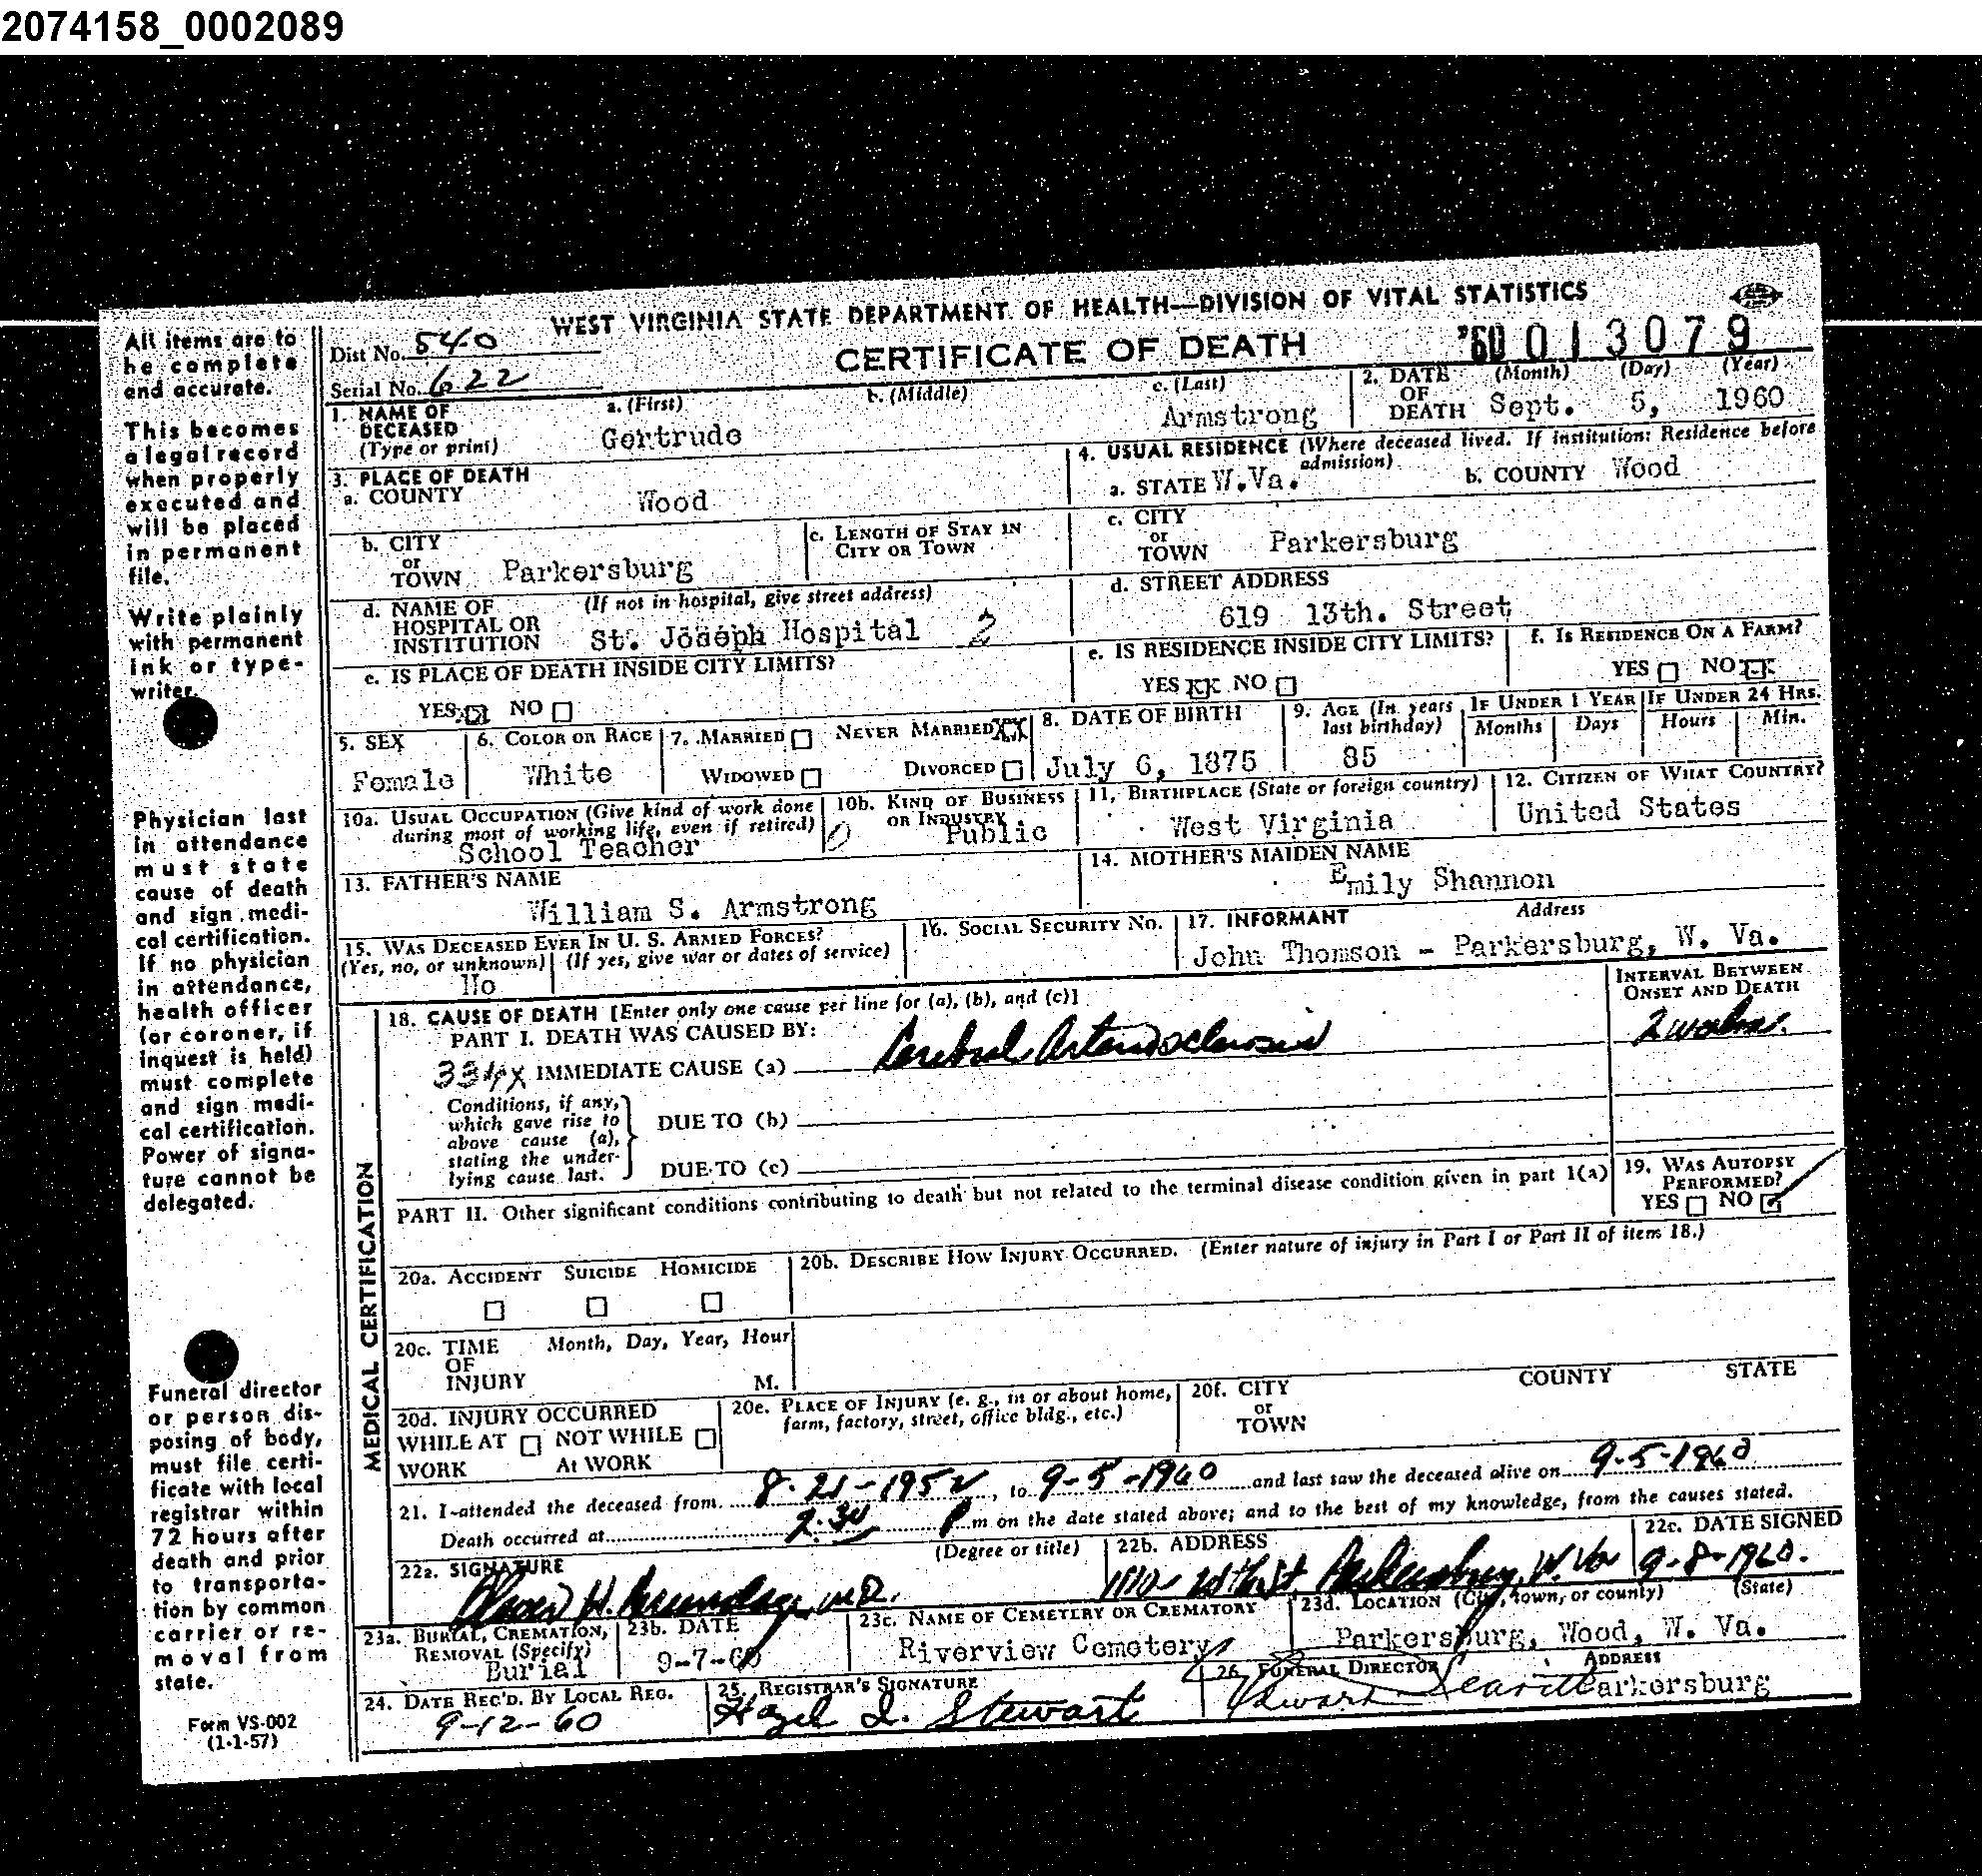 2074158_0002089
WEST VIRGINIA STATE DEPARTMENT OF HEALTH—DIVISION OF VITAL STATISTICS
CERTIFICATE OF DEATH
'60 013079
Dist No. 540
Serial No. 622
1. NAME OF DECEASED (Type or print) a. (First) b. (Middle) c. (Last)
Gertrude Armstrong
2. DATE OF DEATH (Month) (Day) (Year)
Sept. 5, 1960
3. PLACE OF DEATH
a. COUNTY Wood
4. USUAL RESIDENCE (Where deceased lived. If institution: Residence before admission)
a. STATE W.Va. b. COUNTY Wood
b. CITY or TOWN Parkersburg
c. LENGTH OF STAY IN CITY OR TOWN
c. CITY or TOWN Parkersburg
d. NAME OF HOSPITAL OR INSTITUTION (If not in hospital, give street address)
St. Joseph Hospital 2
d. STREET ADDRESS
619 13th. Street
e. IS PLACE OF DEATH INSIDE CITY LIMITS?
YES NO
e. IS RESIDENCE INSIDE CITY LIMITS?
YES NO
f. IS RESIDENCE ON A FARM?
YES NO
5. SEX
Female
6. COLOR OR RACE
White
7. MARRIED NEVER MARRIED XX
WIDOWED DIVORCED
8. DATE OF BIRTH
July 6, 1875
9. AGE (In years last birthday)
85
IF UNDER 1 YEAR
Months Days
IF UNDER 24 HRS.
Hours Min.
10a. USUAL OCCUPATION (Give kind of work done during most of working life, even if retired)
School Teacher
10b. KIND OF BUSINESS OR INDUSTRY
Public
11. BIRTHPLACE (State or foreign country)
West Virginia
12. CITIZEN OF WHAT COUNTRY?
United States
13. FATHER'S NAME
William S. Armstrong
14. MOTHER'S MAIDEN NAME
Emily Shannon
15. WAS DECEASED EVER IN U. S. ARMED FORCES?
(Yes, no, or unknown) (If yes, give war or dates of service)
No
16. SOCIAL SECURITY No.
17. INFORMANT Address
John Thomson - Parkersburg, W. Va.
MEDICAL CERTIFICATION
18. CAUSE OF DEATH [Enter only one cause per line for (a), (b), and (c)]
INTERVAL BETWEEN ONSET AND DEATH
PART I. DEATH WAS CAUSED BY:
334X IMMEDIATE CAUSE (a) Cerebral Arteriosclerosis
2 weeks.
Conditions, if any, which gave rise to above cause (a), stating the underlying cause last.
DUE TO (b)
DUE TO (c)
PART II. Other significant conditions contributing to death but not related to the terminal disease condition given in part 1(a)
19. WAS AUTOPSY PERFORMED?
YES NO
20a. ACCIDENT SUICIDE HOMICIDE
20b. DESCRIBE HOW INJURY OCCURRED. (Enter nature of injury in Part I or Part II of item 18.)
20c. TIME OF INJURY Month, Day, Year, Hour
M.
20d. INJURY OCCURRED
WHILE AT WORK NOT WHILE At WORK
20e. PLACE OF INJURY (e. g., in or about home, farm, factory, street, office bldg., etc.)
20f. CITY or TOWN COUNTY STATE
21. I attended the deceased from 8-21-1952, to 9-5-1960 and last saw the deceased alive on 9-5-1960
Death occurred at 2:30 P m on the date stated above; and to the best of my knowledge, from the causes stated.
22a. SIGNATURE (Degree or title)
H. Brundage, M.D.
22b. ADDRESS
St. Parkersburg, W. Va
22c. DATE SIGNED
9-8-1960.
23a. BURIAL, CREMATION, REMOVAL (Specify)
Burial
23b. DATE
9-7-60
23c. NAME OF CEMETERY OR CREMATORY
Riverview Cemetery
23d. LOCATION (City, town, or county) (State)
Parkersburg, Wood, W. Va.
24. DATE REC'D. BY LOCAL REG.
9-12-60
25. REGISTRAR'S SIGNATURE
Hazel I. Stewart
26. FUNERAL DIRECTOR ADDRESS
Parkersburg
All items are to
be complete
and accurate.
This becomes
a legal record
when properly
executed and
will be placed
in permanent
file.
Write plainly
with permanent
ink or type-
writer.
Physician last
in attendance
must state
cause of death
and sign medi-
cal certification.
If no physician
in attendance,
health officer
(or coroner, if
inquest is held)
must complete
and sign medi-
cal certification.
Power of signa-
ture cannot be
delegated.
Funeral director
or person dis-
posing of body,
must file certi-
ficate with local
registrar within
72 hours after
death and prior
to transporta-
tion by common
carrier or re-
moval from
state.
Form VS-002
(1-1-57)